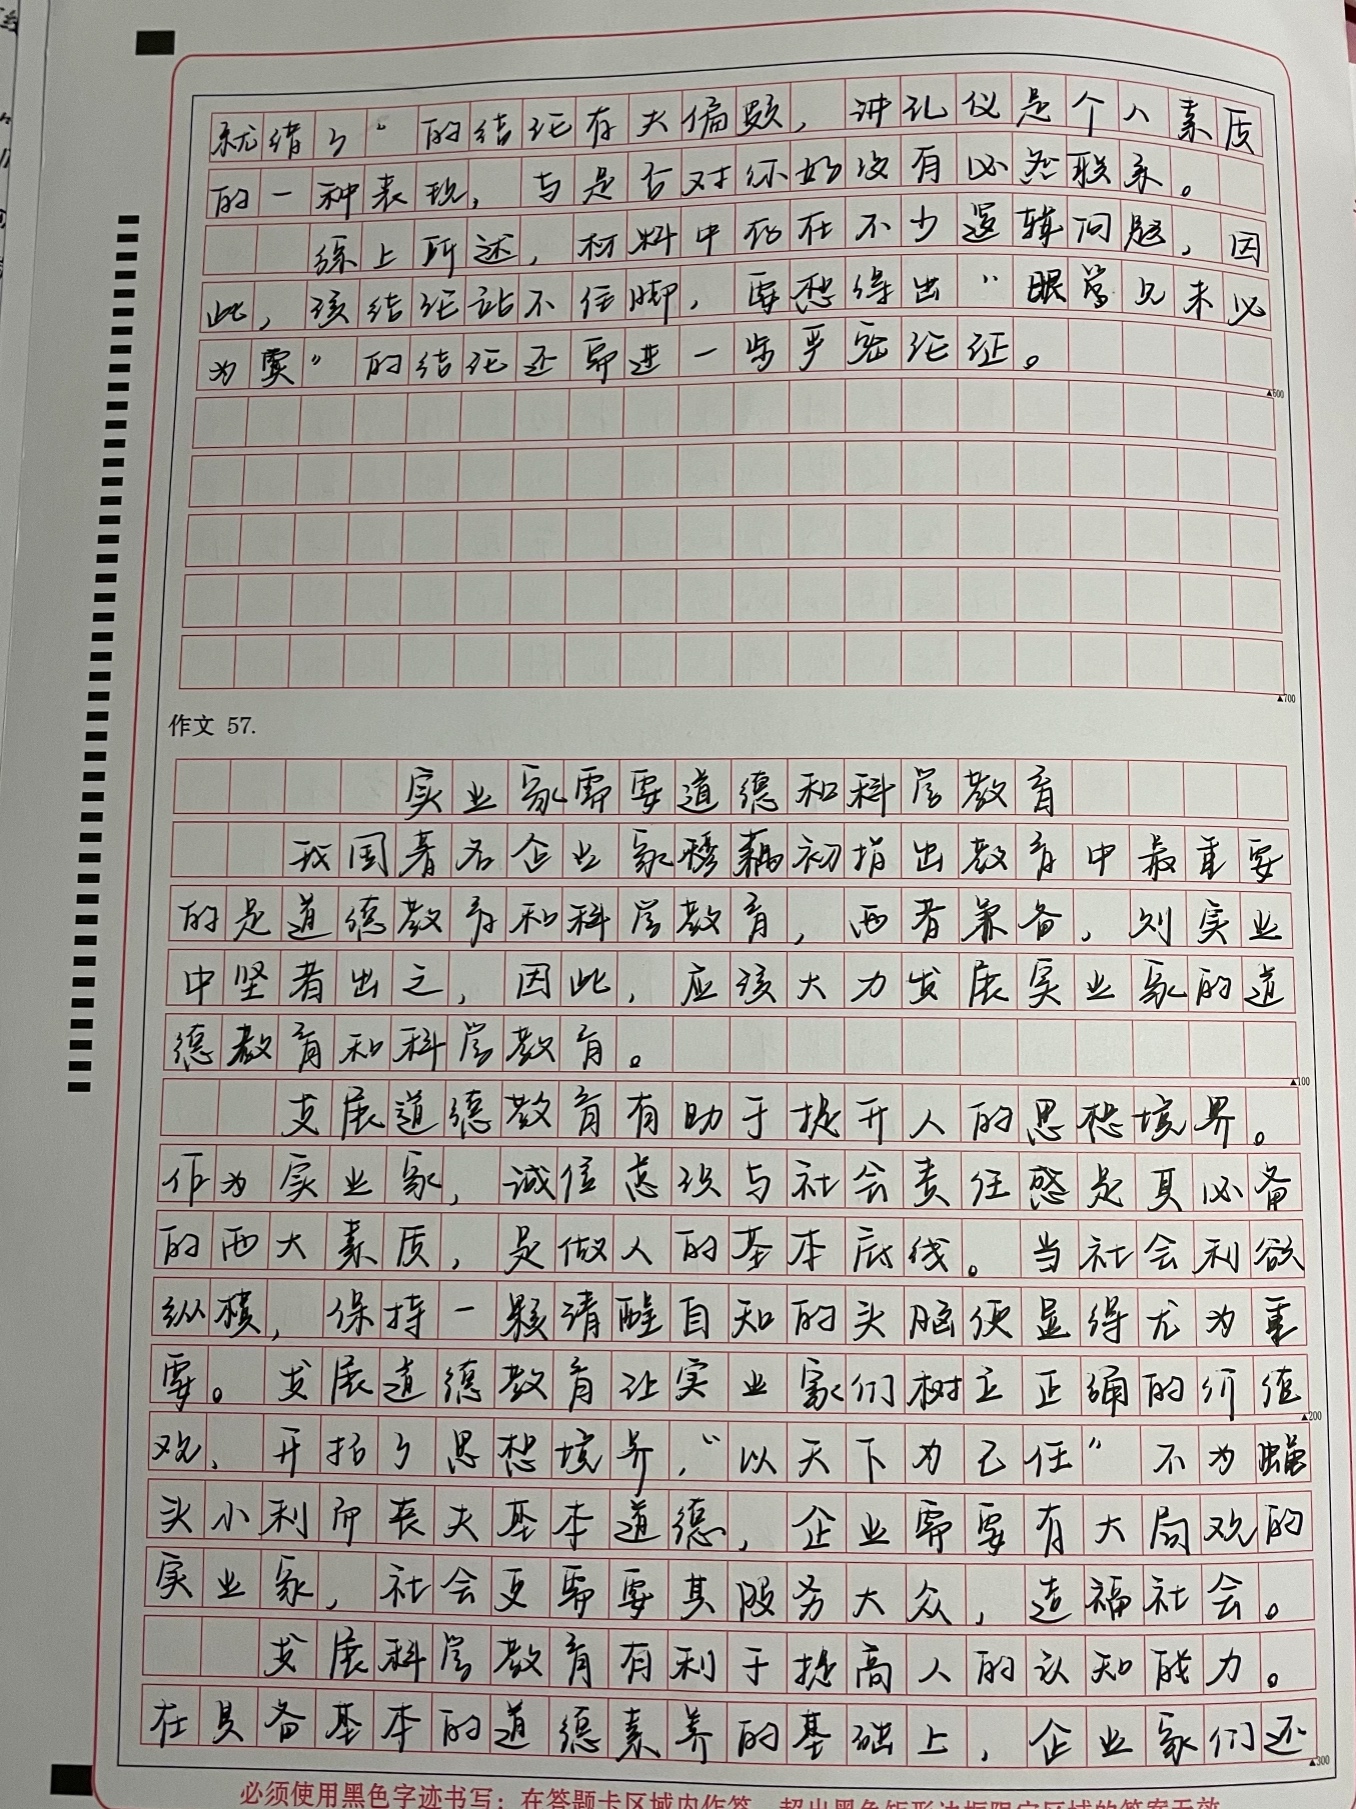 就错了”的结论有大偏颇，讲礼仪是个人素质
的一种表现，与是否对你好没有必然联系。
综上所述，材料中存在不少逻辑问题，因
此，该结论站不住脚，要想得出“眼常见未必
为实”的结论还需进一步严密论证。
▲600
▲700
作文 57.
实业家需要道德和科学教育
我国著名企业家穆藕初指出教育中最重要
的是道德教育和科学教育，两者兼备，则实业
中坚者出之，因此，应该大力发展实业家的道
德教育和科学教育。
▲100
发展道德教育有助于提升人的思想境界。
作为实业家，诚信意识与社会责任感是其必备
的两大素质，是做人的基本底线。当社会利欲
纵横，保持一颗清醒自知的头脑便显得尤为重
要。发展道德教育让实业家们树立正确的价值
▲200
观、开拓了思想境界，“以天下为己任”不为蝇
头小利所丧失基本道德，企业需要有大局观的
实业家，社会更需要其服务大众，造福社会。
发展科学教育有利于提高人的认知能力。
在具备基本的道德素养的基础上，企业家们还
▲300
必须使用黑色字迹书写；在答题卡区域内作答，超出黑色矩形边框限定区域的答案无效